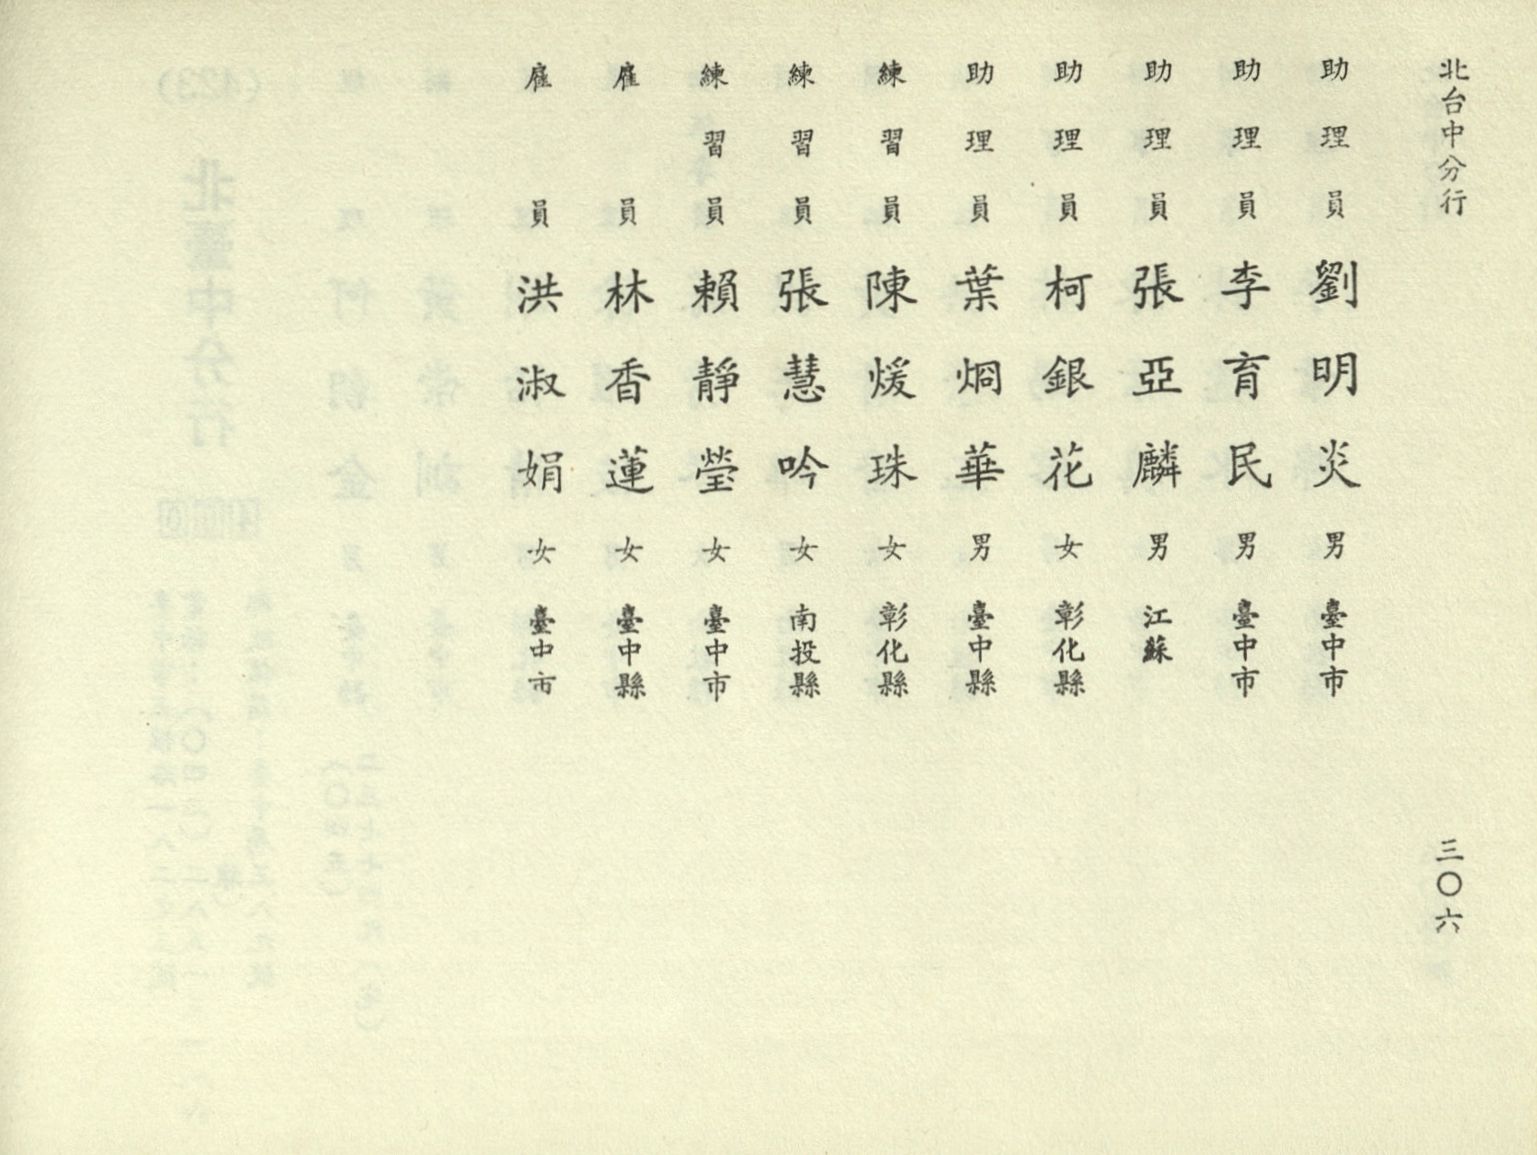 北台中分行
三〇六
助理員 劉明炎 男 臺中市
助理員 李育民 男 臺中市
助理員 張亞麟 男 江蘇
助理員 柯銀花 女 彰化縣
助理員 葉烱華 男 臺中縣
練習員 陳煖珠 女 彰化縣
練習員 張慧吟 女 南投縣
練習員 賴靜瑩 女 臺中市
雇員 林香蓮 女 臺中縣
雇員 洪淑娟 女 臺中市